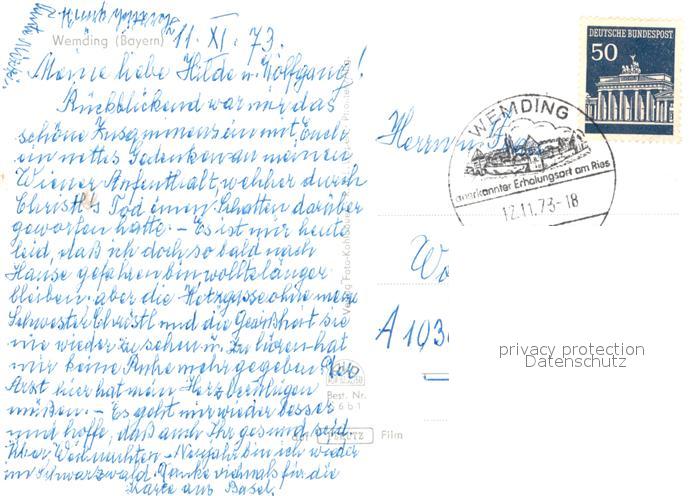 Wemding (Bayern)
11. XI. 73.
Meine liebe Hilde u. Wolfgang!
Rückblickend war mir das
schöne Zusammensein mit Euch
ein nettes Gedenken an meinen
Wiener Aufenthalt, welcher durch
Christl's Tod einen Schatten darüber
geworfen hatte. – Es ist mir heute
leid, daß ich doch so bald nach
Hause gefahren bin wollte länger
bleiben, aber die Metzgasse ohne meine
Schwester Christl und die Gewißheit sie
nie wieder zu sehen u. zu hören hat
mir keine Ruhe mehr gegeben. Der
Arzt hier hat mein Herz beruhigen
müßen. – Es geht mir wieder besser
und hoffe, daß auch Ihr gesund seid.
Über Weihnachten – Neujahr bin ich wieder
im Schwarzwald. Danke vielmals für die
Karte aus Basel!
Herrn u.
A 103
DEUTSCHE BUNDESPOST
50
WEMDING
anerkannter Erholungsort am Ries
12.11.73-18
Best. Nr.
Film
privacy protection
Datenschutz